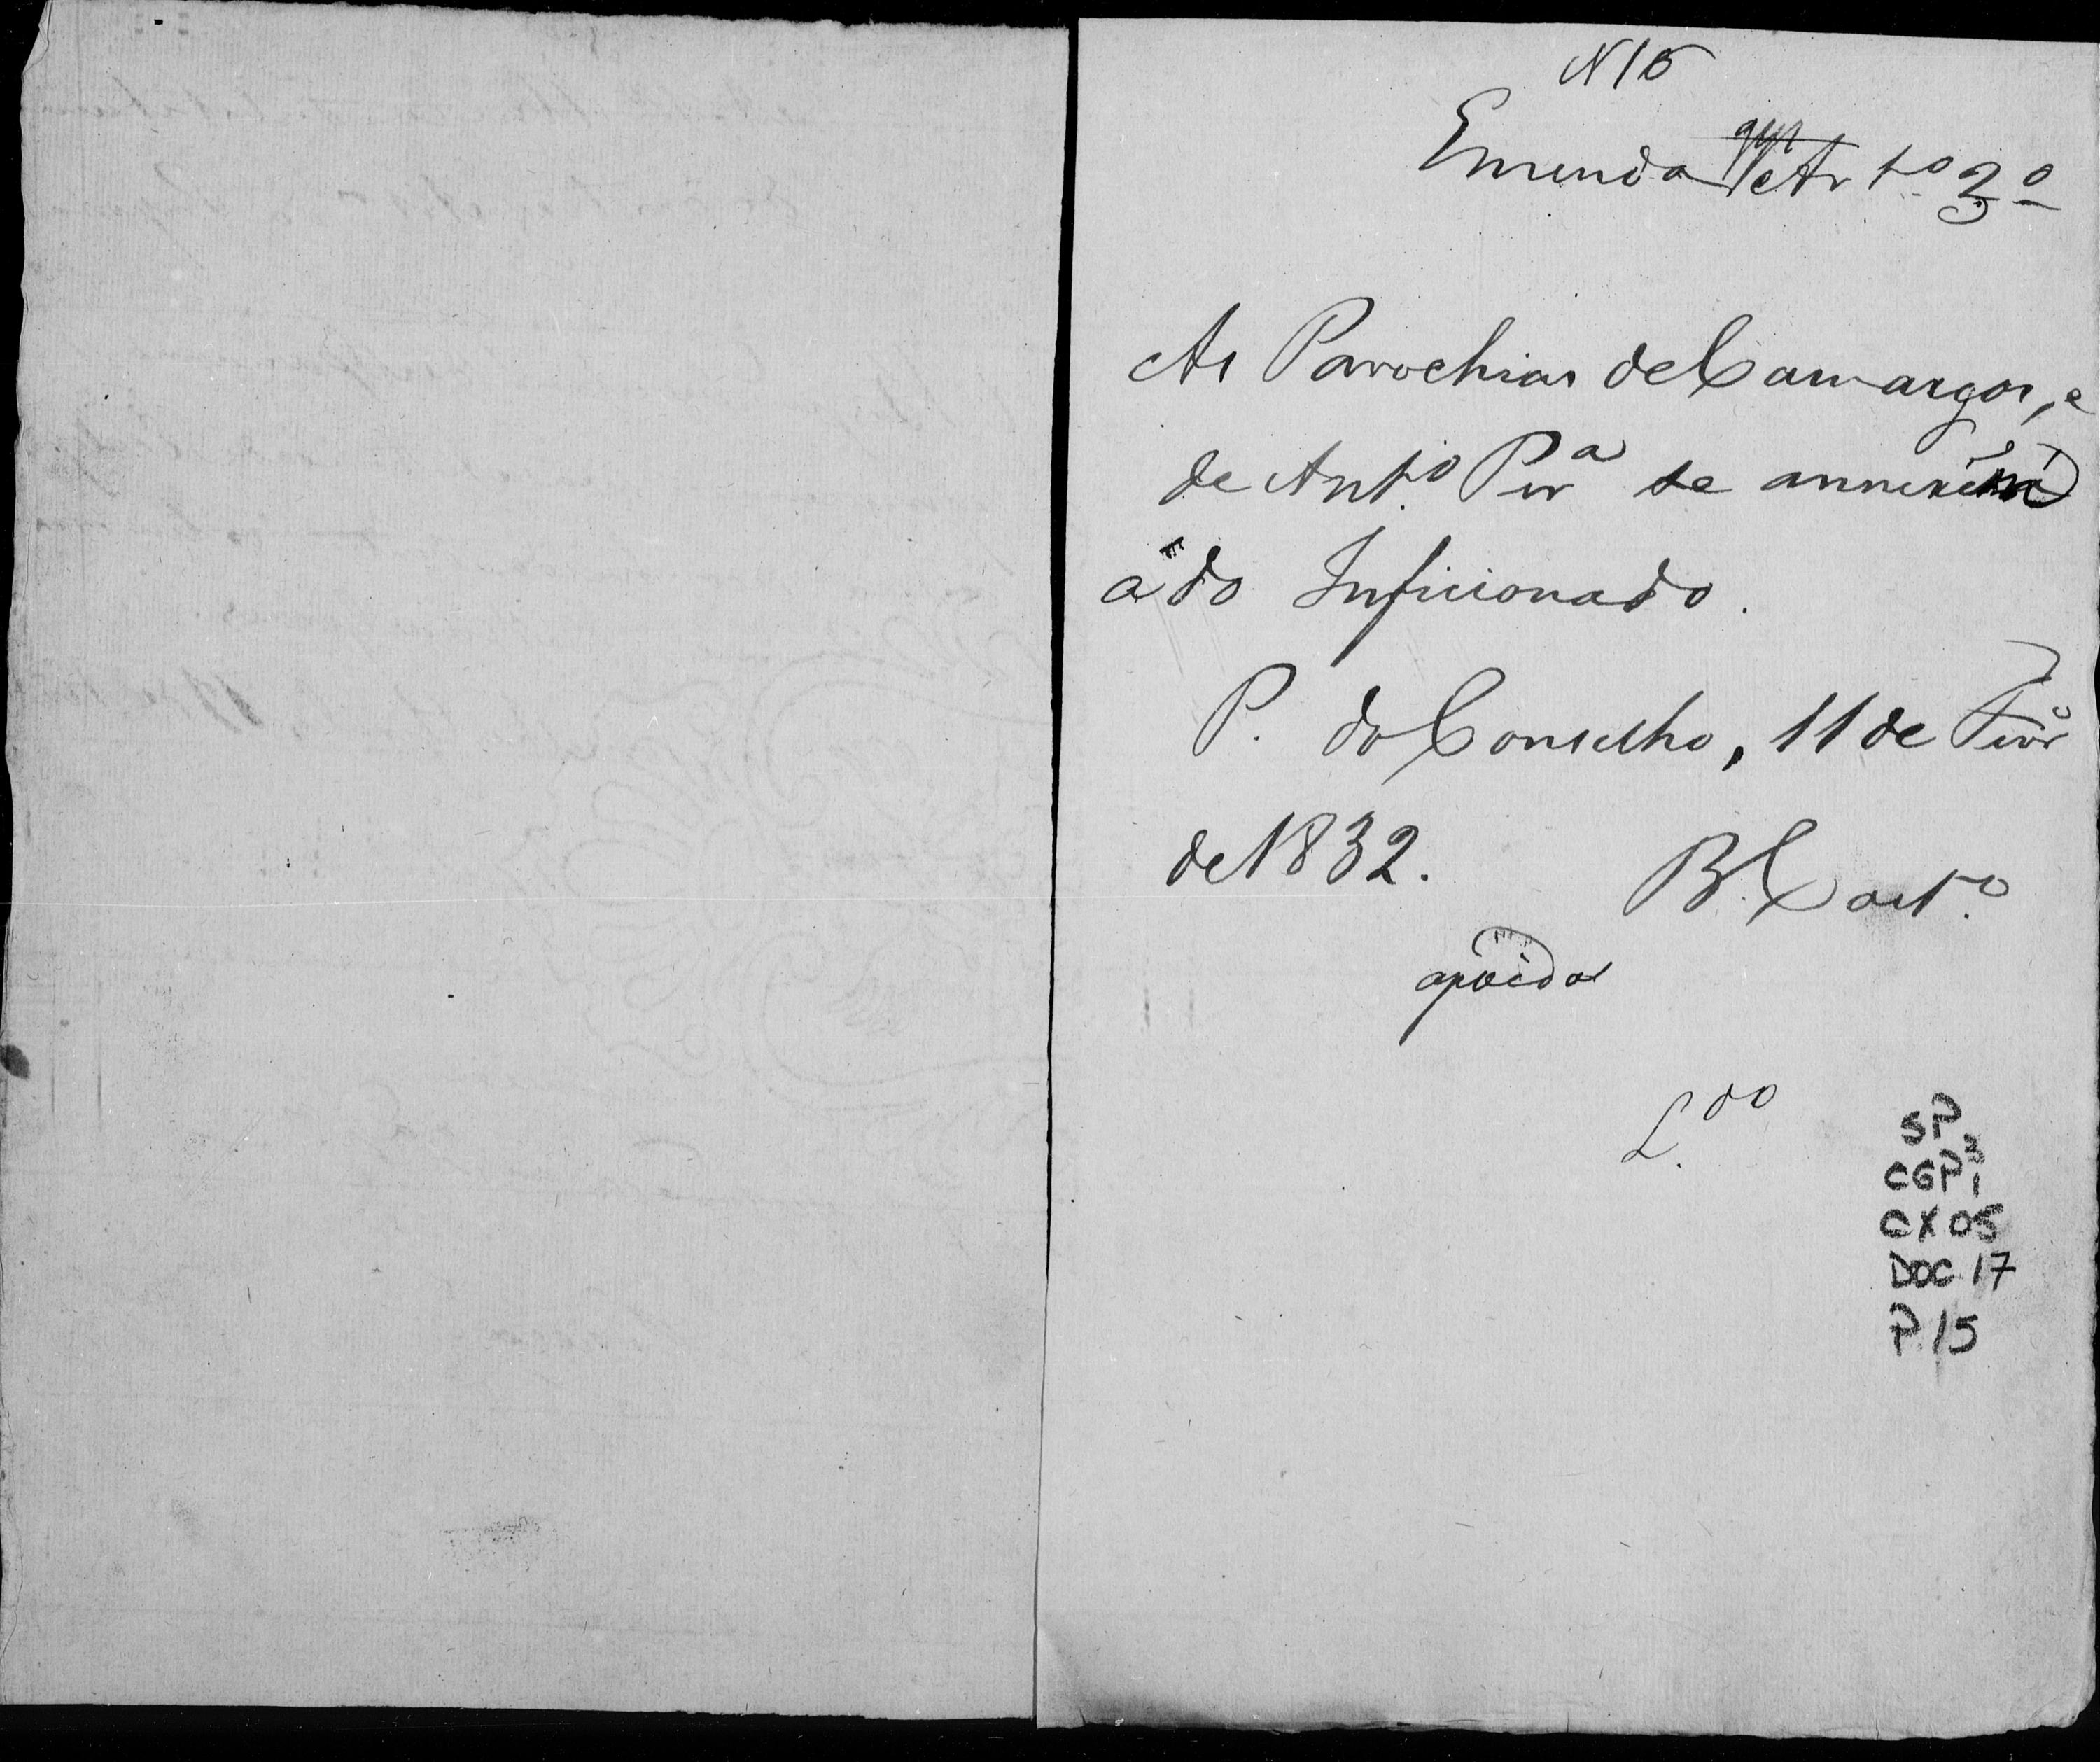 N 16
Emenda Arto 3º
As Parochias de Camargos, e
de Antº Pirª se annexem
á do Inficionado.
P. do Conselho, 11 de Fevrº
de 1832. B. Castº
apoiada
L.do
SP
CGP 3 1
CX 05
DOC 17
P. 15